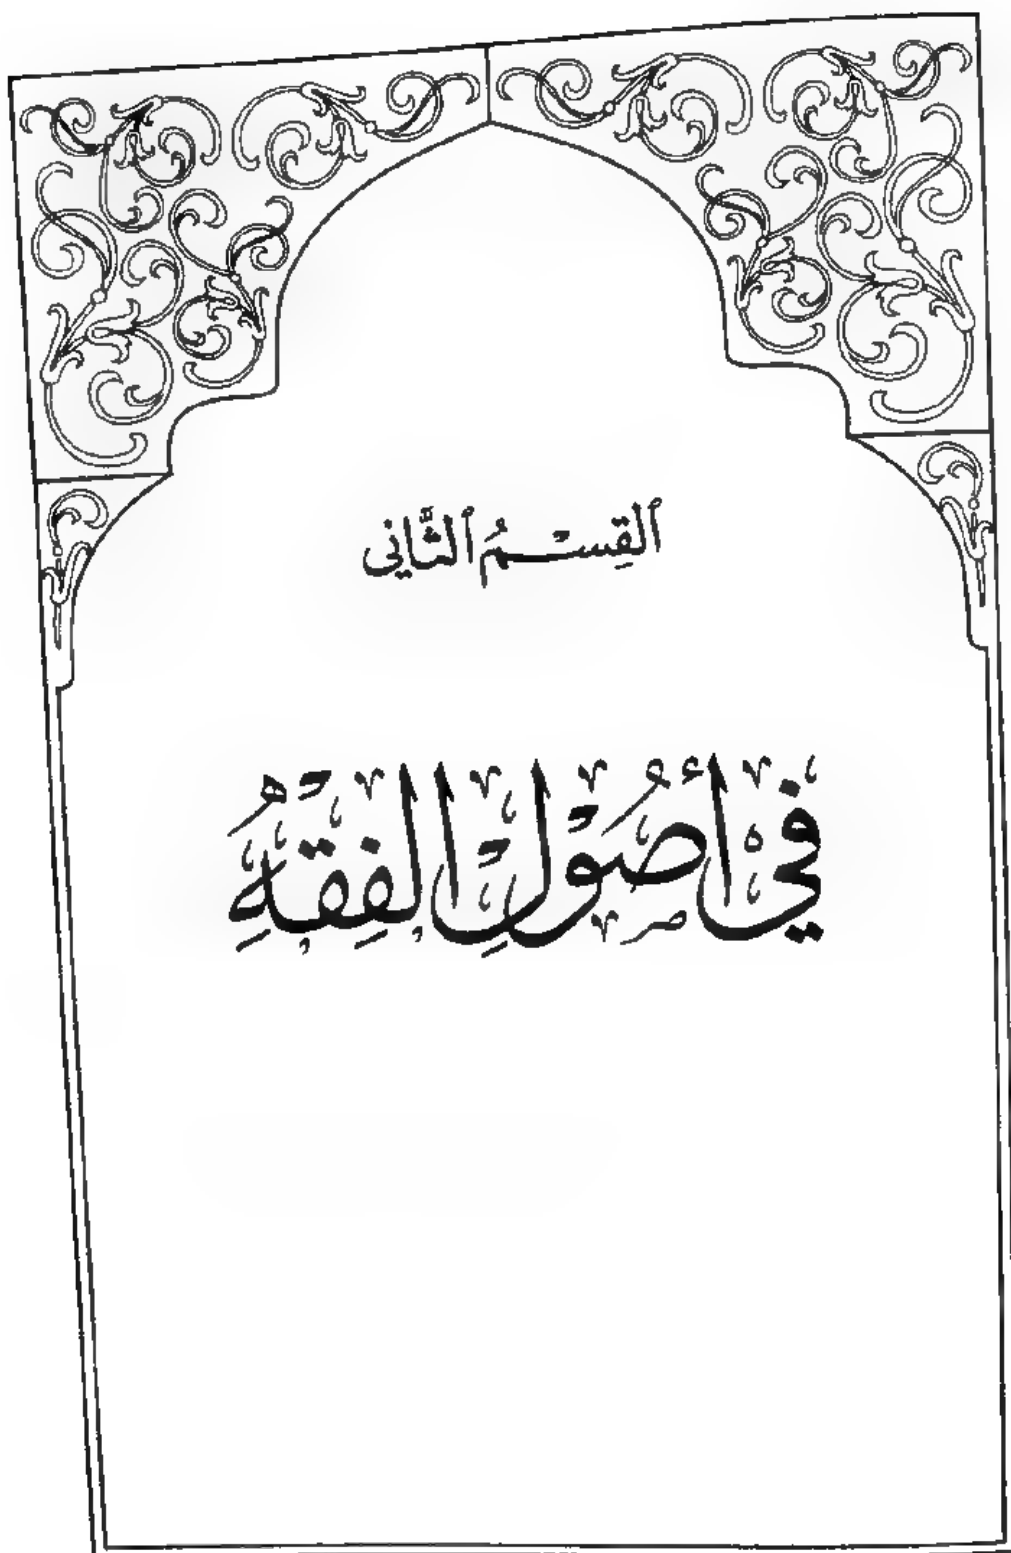 القِسْمُ الثَّاني
في أُصُوْلِ الفِقْهِ